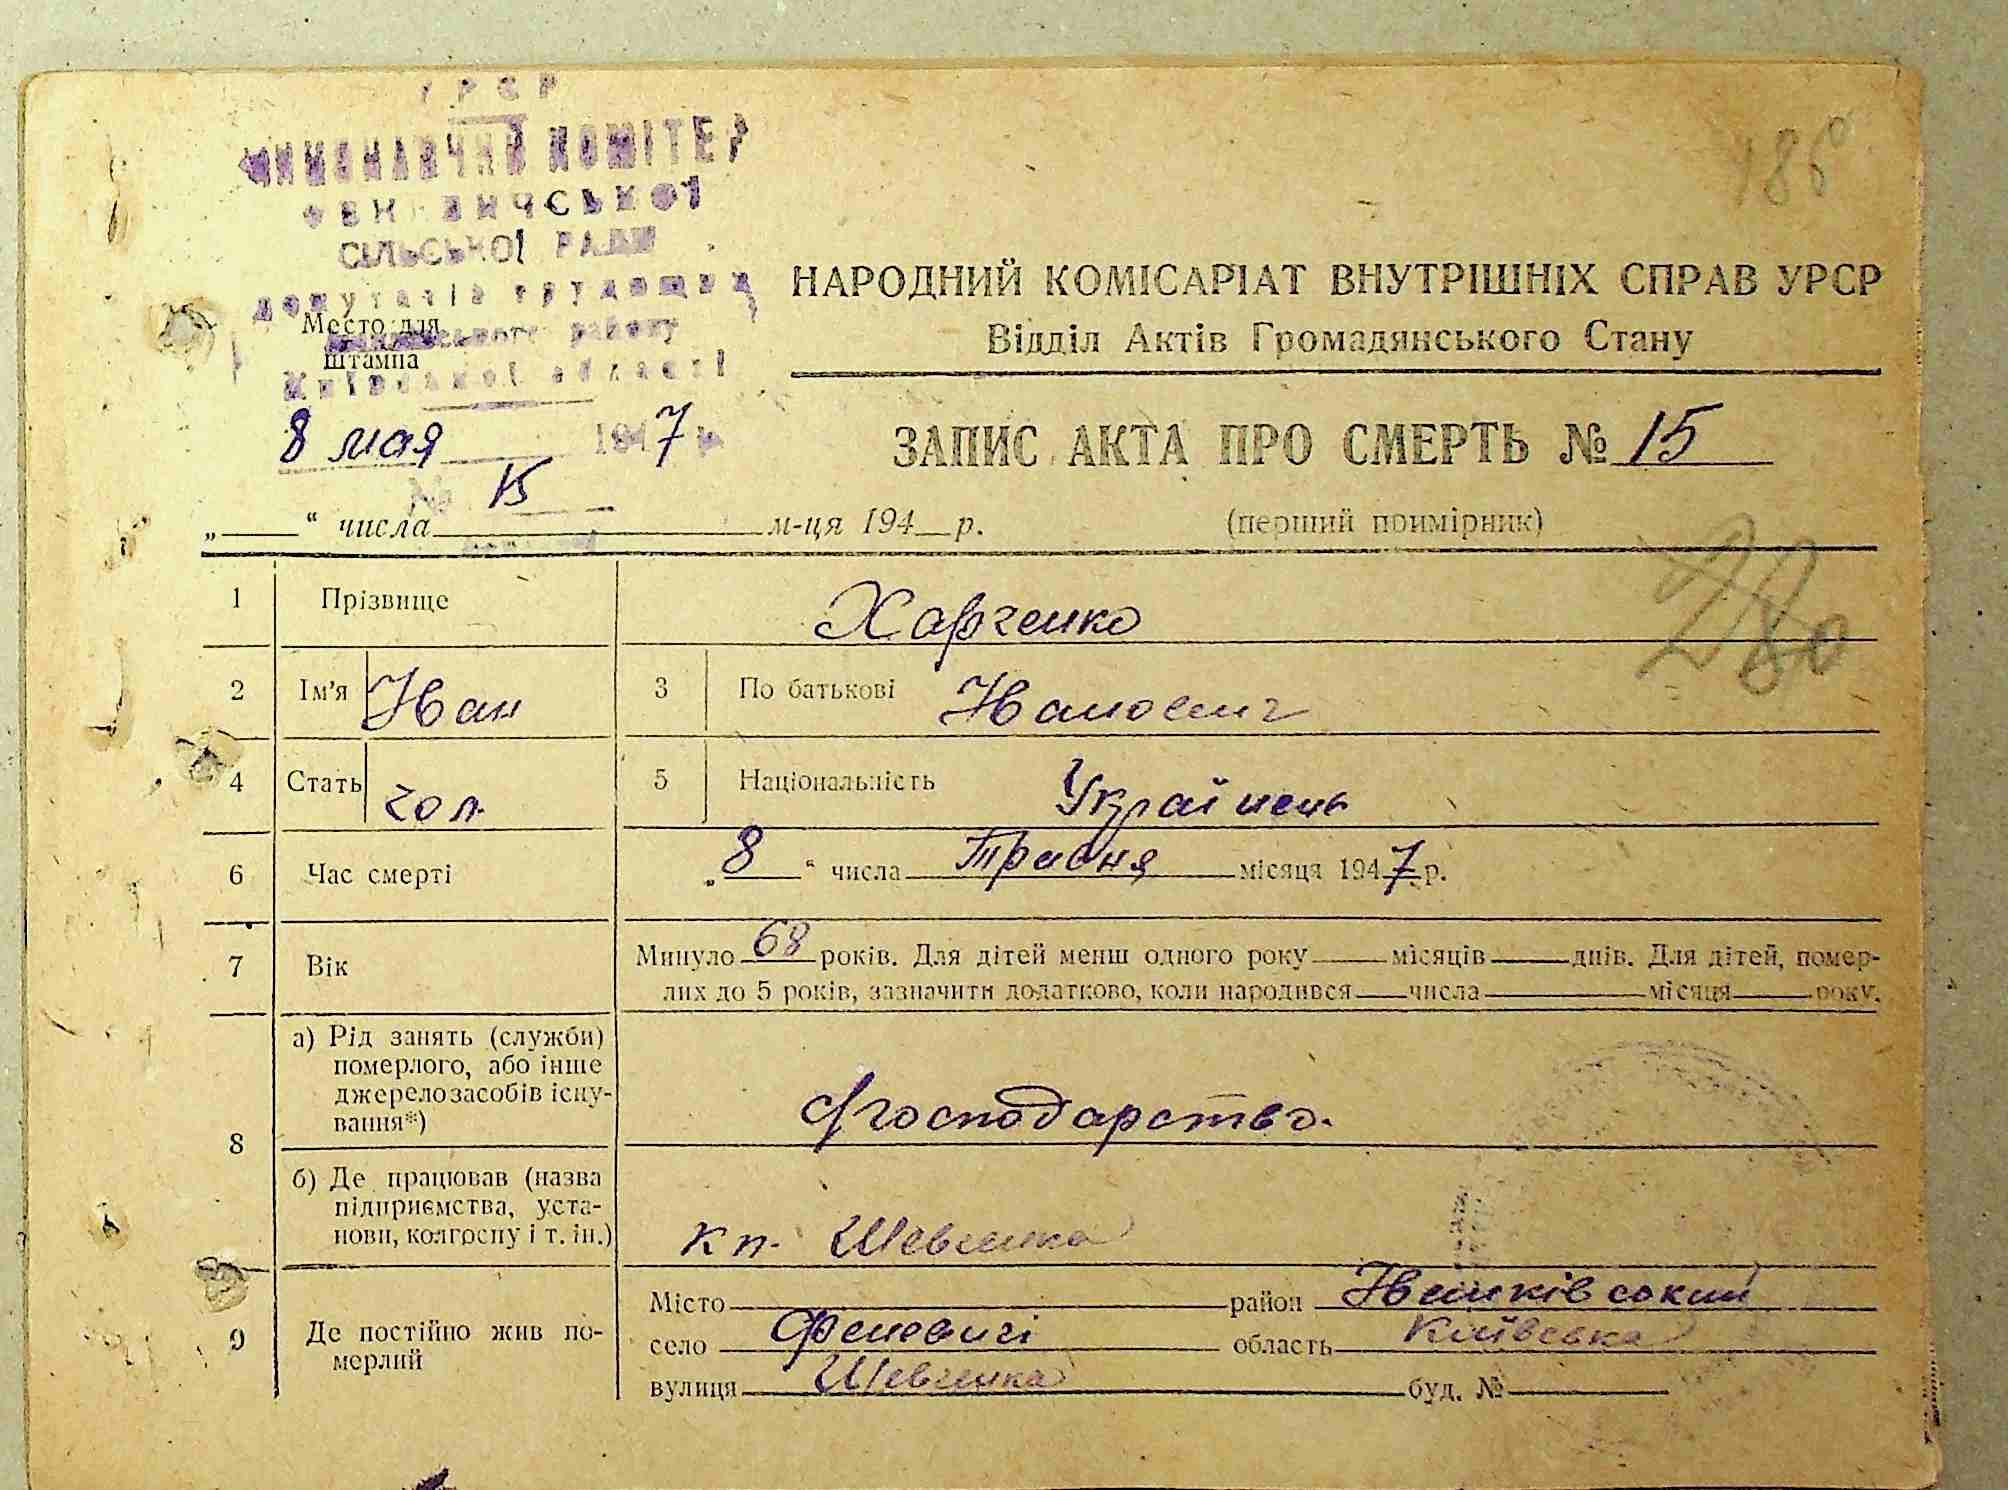 УРСР
ВИКОНАВЧИЙ КОМІТЕТ
ФЕНЕВИЧСЬКОЇ
СІЛЬСЬКОЇ РАДИ
депутатів трудящих
Место для
району
штампа
Київської області
8 мая 1947 р.
№ 15
"___" числа ___ м-ця 194__ р.
186
НАРОДНИЙ КОМІСАРІАТ ВНУТРІШНІХ СПРАВ УРСР
Відділ Актів Громадянського Стану
ЗАПИС АКТА ПРО СМЕРТЬ № 15
(перший примірник)
1 Прізвище Харченко
2 Ім'я Іван 3 По батькові Іванович
4 Стать чол. 5 Національність Українець
6 Час смерті „8“ числа Травня місяця 1947 р.
7 Вік Минуло 68 років. Для дітей менш одного року ___ місяців ___ днів. Для дітей, помер-
лих до 5 років, зазначити додатково, коли народився ___ числа ___ місяця ___ року.
8 а) Рід занять (служби)
померлого, або інше
джерело засобів існу-
вання*)
с/господарство.
б) Де працював (назва
підприємства, уста-
нови, колгоспу і т. ін.)
кп. Шевченка
9 Де постійно жив по-
мерлий
Місто ___ район Іванківський
село Феневичі область Київська
вулиця Шевченка буд. № ___